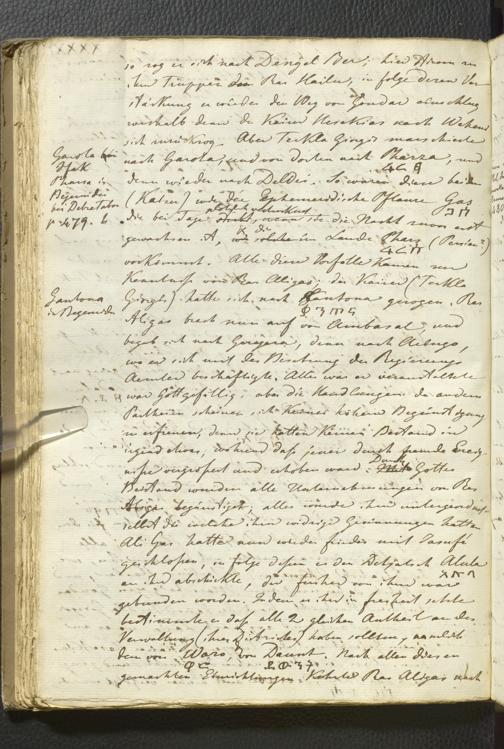 so zog er sich nach Dengel Ber; hier
Truppen des Ras Hailu, in folge deren Ver
stärkung er wieder den Weg von Gondar einschlug
weshalb denn der Kaiser Heskias nach Wehani
sich zurückzog. Aber Tekla Girgis marschierte
nach Garota; und von dorten nach Pharza, und
denn wieder nach Deldei. So waren diese beide
(Kaiser) wie die Ephemerdische Pflanze Gas
die bei Tage wenn sie die Nacht zuvor erst
gewachsen A, wie solche im Lande Phars (Persien?)
vorkommt. Alle diese Vorfälle kamen zur
Kenntniss von Ras Aligas; der Kaiser (Tekla
Girgis) hatte sich nach Zantona gezogen. Ras
Aligas brach nun auf von Ambasat, und
begab sich nach Gorgora, dann nach
wo er sich mit der der Regierungs
Aemter beschäftigte. Alles was er veranstaltete
war Gottgefällig; aber die Handlungen der andern
Partheien scheinen sich keiner höhern Begünstigung
zu erfreuen, denn sie hatten keinen Bestand in
irgend etwas, während dass jener durch fremde Ereig
nisse vergrössert und erhoben ward. Durch Gottes
Beistand wurden alle Unternehmungen von Ras
Aligas begünstigt, alles wurde ihm untergeordnet
selbst die welche ihm widrige Gesinnungen hatten
Ali Gas hatte nun wieder frieden mit Jasufe
geschlossen, in folge dessen er den Detjatsch Alula
an ihn abschickte, der früher von ihm war
gebunden worden. Indem er ihn in freiheit setzte
bestimmte er dass alle 2 gleichen Antheil an der
Verwaltung ihres Districkes haben sollten, nämlich
den von Waro, von Daunt. Nach allen diesen
gemachten Einrichtungen kehrte Ras Aligas nach
Garota
Ifak
Pharza in
Begemeder
bei Debratabor
p. 479. b.
Zantona
in Begemeder